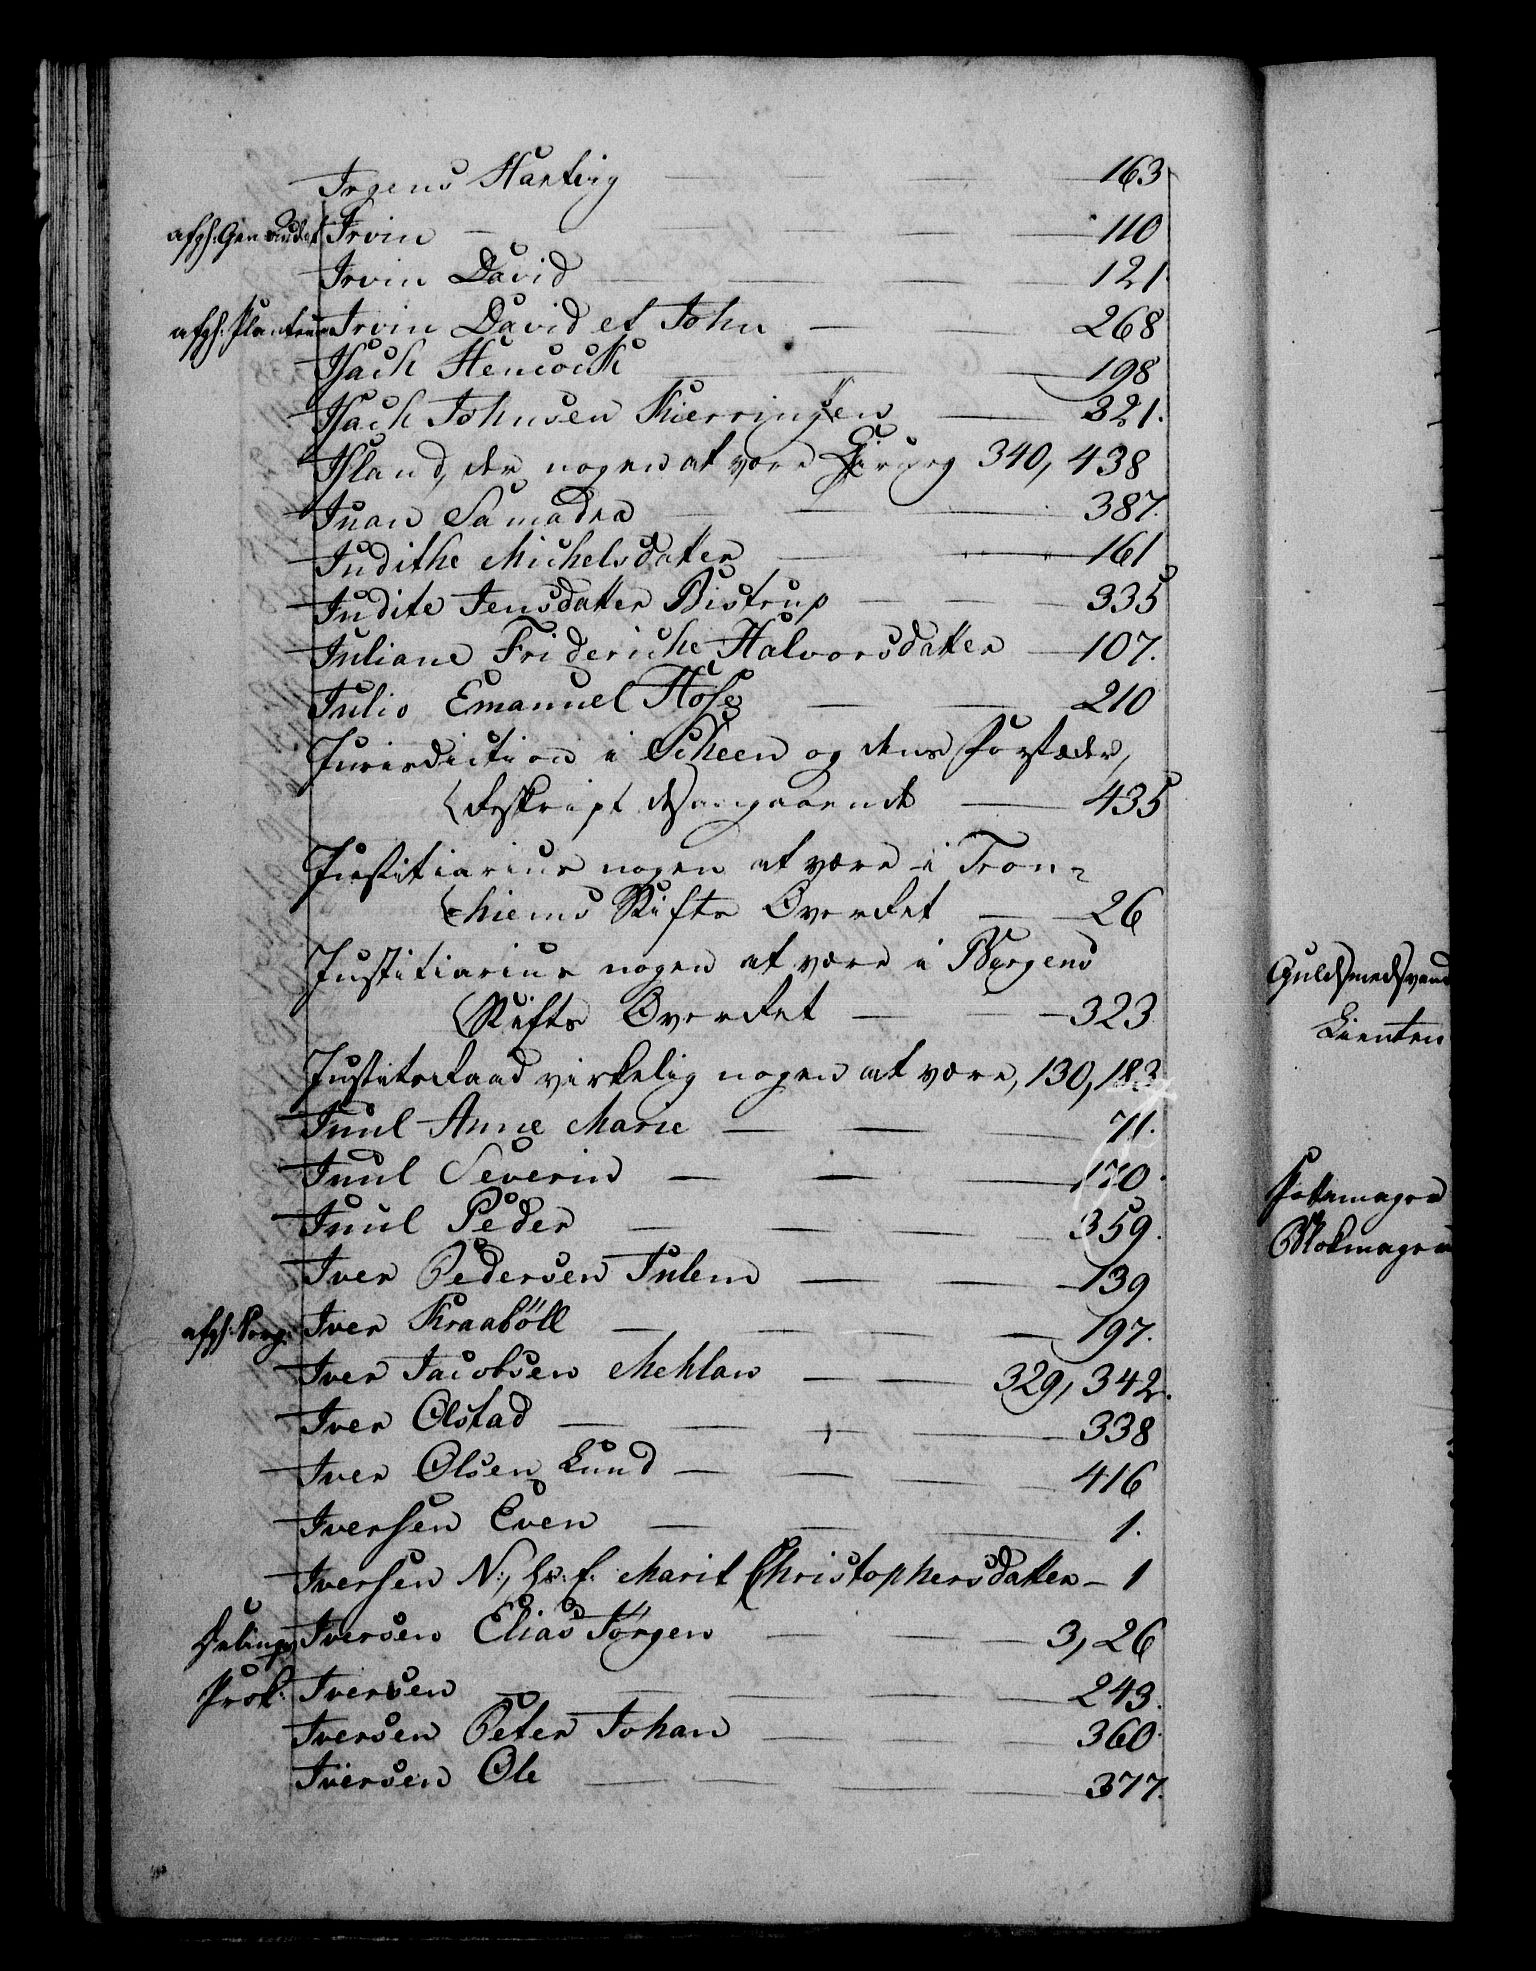 Irgens Hartvig 163
Irvin 110
Irvin David 121.
afg: Planteur Irvin David et John 268
Isach Hencock 198
Isach Johnsen Kierringen 321.
Island, der nogen at være Chirurg 340, 438
Juan Samadra 387
Judithe Michelsdatter 161
Judite Jensdatter Bistrup 335
Juliane Friderische Halvorsdatter 107.
Julio Emanuel Hose 210
Jurisdiction i Scheen og dens Forstæder,
Reskript desangaaende 435
Justitiarius nogen at være i Tron-
hiems Stifts Overret 26
Justitiarius nogen at være i Bergens
Stifts Overret 323
Justitsraad virkelig nogen at være, 130, 183
Juul Anne Marie 71.
Juul Severin 170.
Juul Peder 359.
Iver Pedersen Julem 139
Iver Kraaböll 197.
Iver Jacobsen Mehlan 329, 342.
Iver Olstad 338
Iver Olsen Lund 416
Iversen Even 1.
Iversen N:, Marit Christophersdatter 1
Iversen Elias Jörgen 3, 26
Prok: Iversen 243.
Iversen Peter Johan 360.
Iversen Ole 377.
Guldsmedsvend
Lieuten
Pottemager
Blokmager